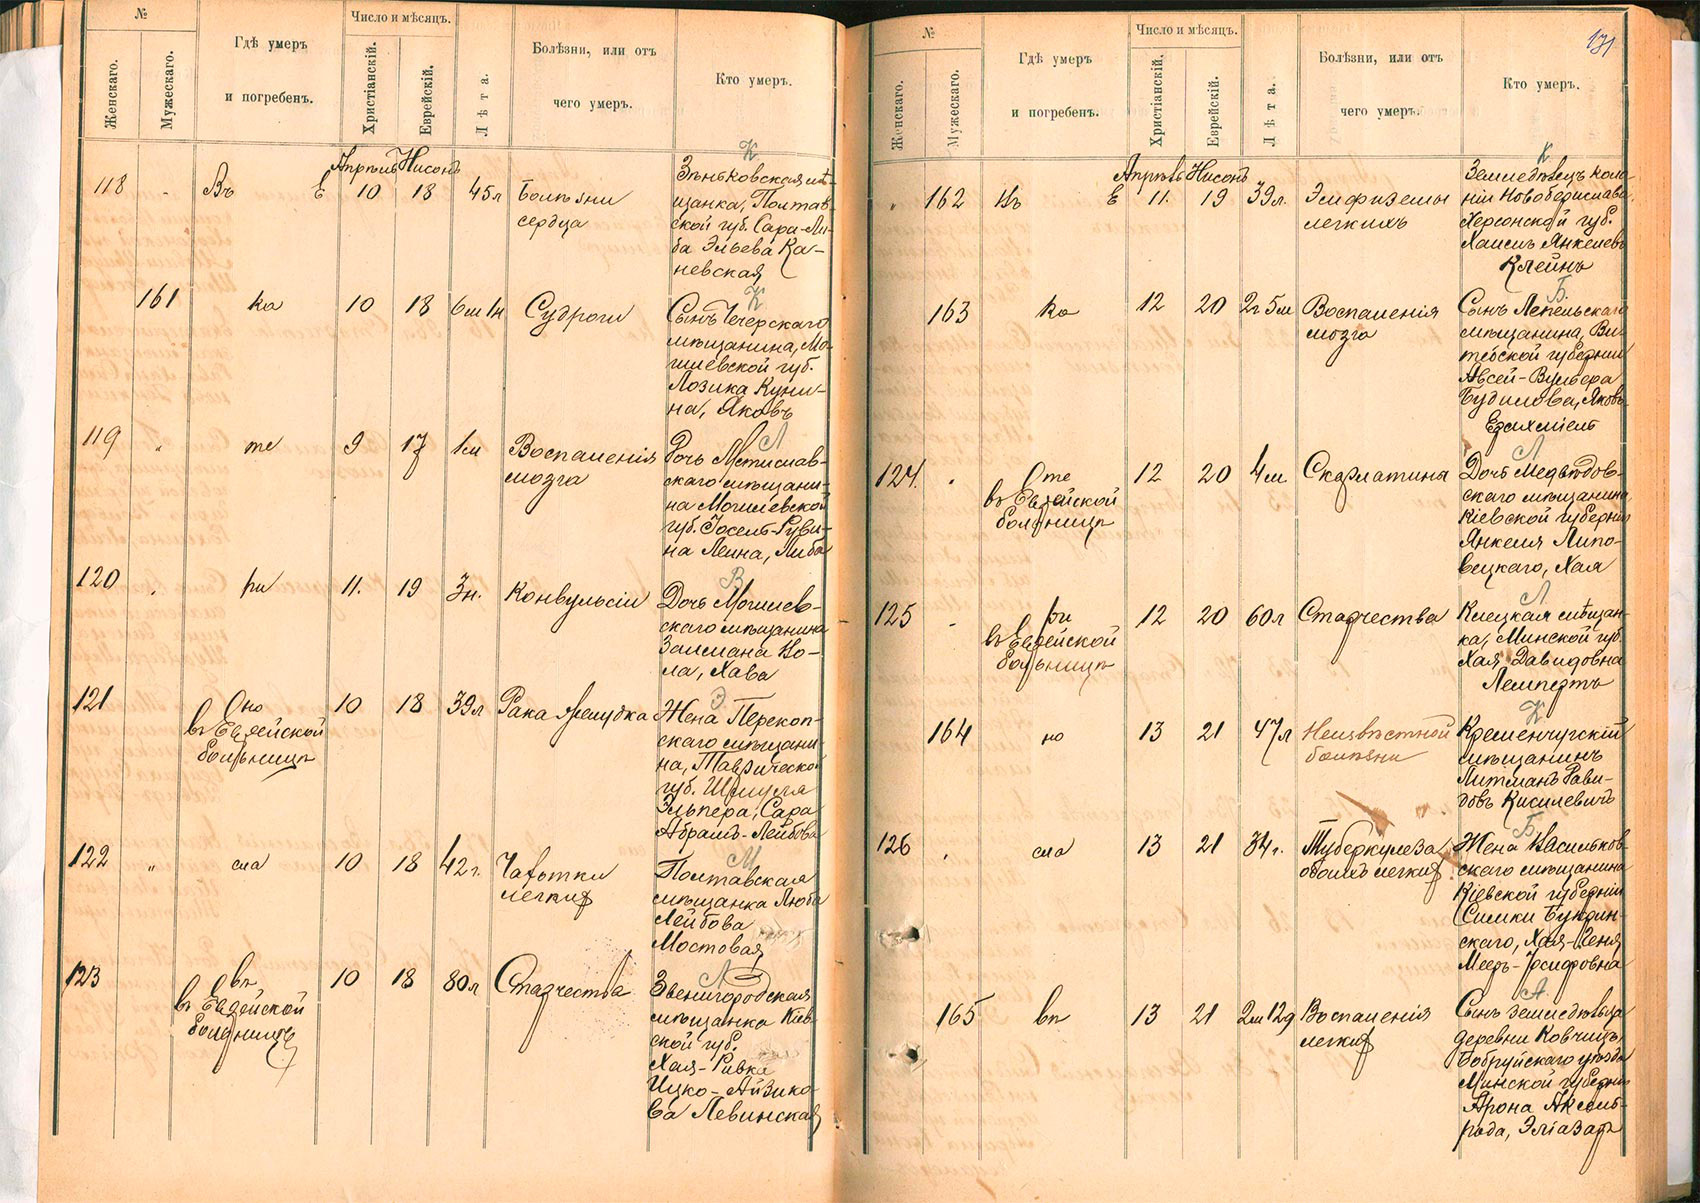 №
Женскаго.
Мужескаго.
Гдѣ умеръ
и погребенъ.
Число и мѣсяцъ.
Христіанскій.
Еврейскій.
Лѣта.
Болѣзни, или отъ
чего умеръ.
Кто умеръ.
Апрѣль Нисонъ
К
118 Въ Е 10 18 45л Болѣзни
сердца
Зѣньковская мѣ-
щанка, Полтав-
ской губ. Сара-Ли-
ба Эльева Ка-
невская
К
161 ка 10 18 6м1н Судроги
Сынъ Чечерскаго
мѣщанина, Мо-
гилевской губ.
Лозика Куни-
на, Яковъ
Л
119 „ те 9 17 1м Воспаленія
мозга
Дочь Мстислав-
скаго мѣщани-
на Могилевской
губ. Іосель-Руви-
на Леина, Либа
В
120 ри 11. 19 3н. Конвульсіи
Дочь Могилев-
скаго мѣщанина
Залмана Во-
ла, Хава
Э
121 Оно
въ Еврейской
больницѣ
10 18 39л Рака желудка
Жена Перекоп-
скаго мѣщани-
на, Таврической
губ. Шмуля
Эльпера, Сара
Абрамъ-Лейбова
М
122 „ сла 10 18 42г. Чахотки
легкихъ
Полтавская
мѣщанка Люба
Лейбова
Мостовая
Л
123 Овѣ
въ Еврейской
больницѣ
10 18 80л Старчества
Звенигородская
мѣщанка Кіев-
ской губ.
Хая-Ривка
Ицко-Айзико-
ва Левинская
131
№
Женскаго.
Мужескаго.
Гдѣ умеръ
и погребенъ.
Число и мѣсяцъ.
Христіанскій.
Еврейскій.
Лѣта.
Болѣзни, или отъ
чего умеръ.
Кто умеръ.
Апрѣль Нисонъ
К
„ 162 Въ Е 11. 19 39л. Эмфиземы
легкихъ
Земледѣлецъ коло-
ніи Новобериславъ
Херсонской губ.
Хаимъ Янкелевъ
Клейнъ
Б.
163 ка 12 20 2г5м Воспаленія
мозга
Сынъ Лепельскаго
мѣщанина, Ви-
тебской губерніи
Авсей-Вульфа
Будилова, Яковъ
Езихміель
Л
124. Оте
въ Еврейской
больницѣ
12 20 4м Скарлатина
Дочь Медвѣдов-
скаго мѣщанина
Кіевской губерніи
Янкеля Липо-
вецкаго, Хая
Л
125 Ори
въ Еврейской
больницѣ
12 20 60л Старчества
Клецкая мѣщан-
ка, Минской губ.
Хая Давидовна
Лемпертъ
К
164 но 13 21 47л Неизвѣстной
болѣзни
Кременчугскій
мѣщанинъ
Литманъ Рави-
довъ Кисилевичъ
Б
126 сла 13 21 34г. Туберкулеза
обоихъ легкихъ
Жена Васильков-
скаго мѣщанина
Кіевской губерніи
Симки Букрин-
скаго, Хая-Геня
Мееръ-Іосифовна
А.
165 вѣ 13 21 2м12д Воспаленія
легкихъ
Сынъ земледѣльца
деревни Ковчицъ,
Бобруйскаго уѣзда
Минской губерніи
Арона Аксель-
рода, Эліазаръ